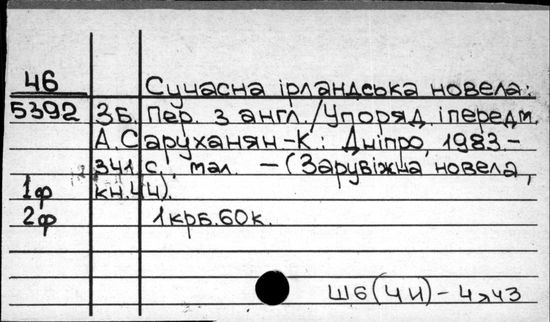 46 Сучасна ірландська новела:
5392 Зб. Пер. з англ./Упоряд. і передм.
А.Саруханян-К.: Дніпро, 1983.-
341 с, мал. - (Зарубіжна новела,
1ф кн.44).
2ф 1крб.60к.
Ш6(4И)-4я43